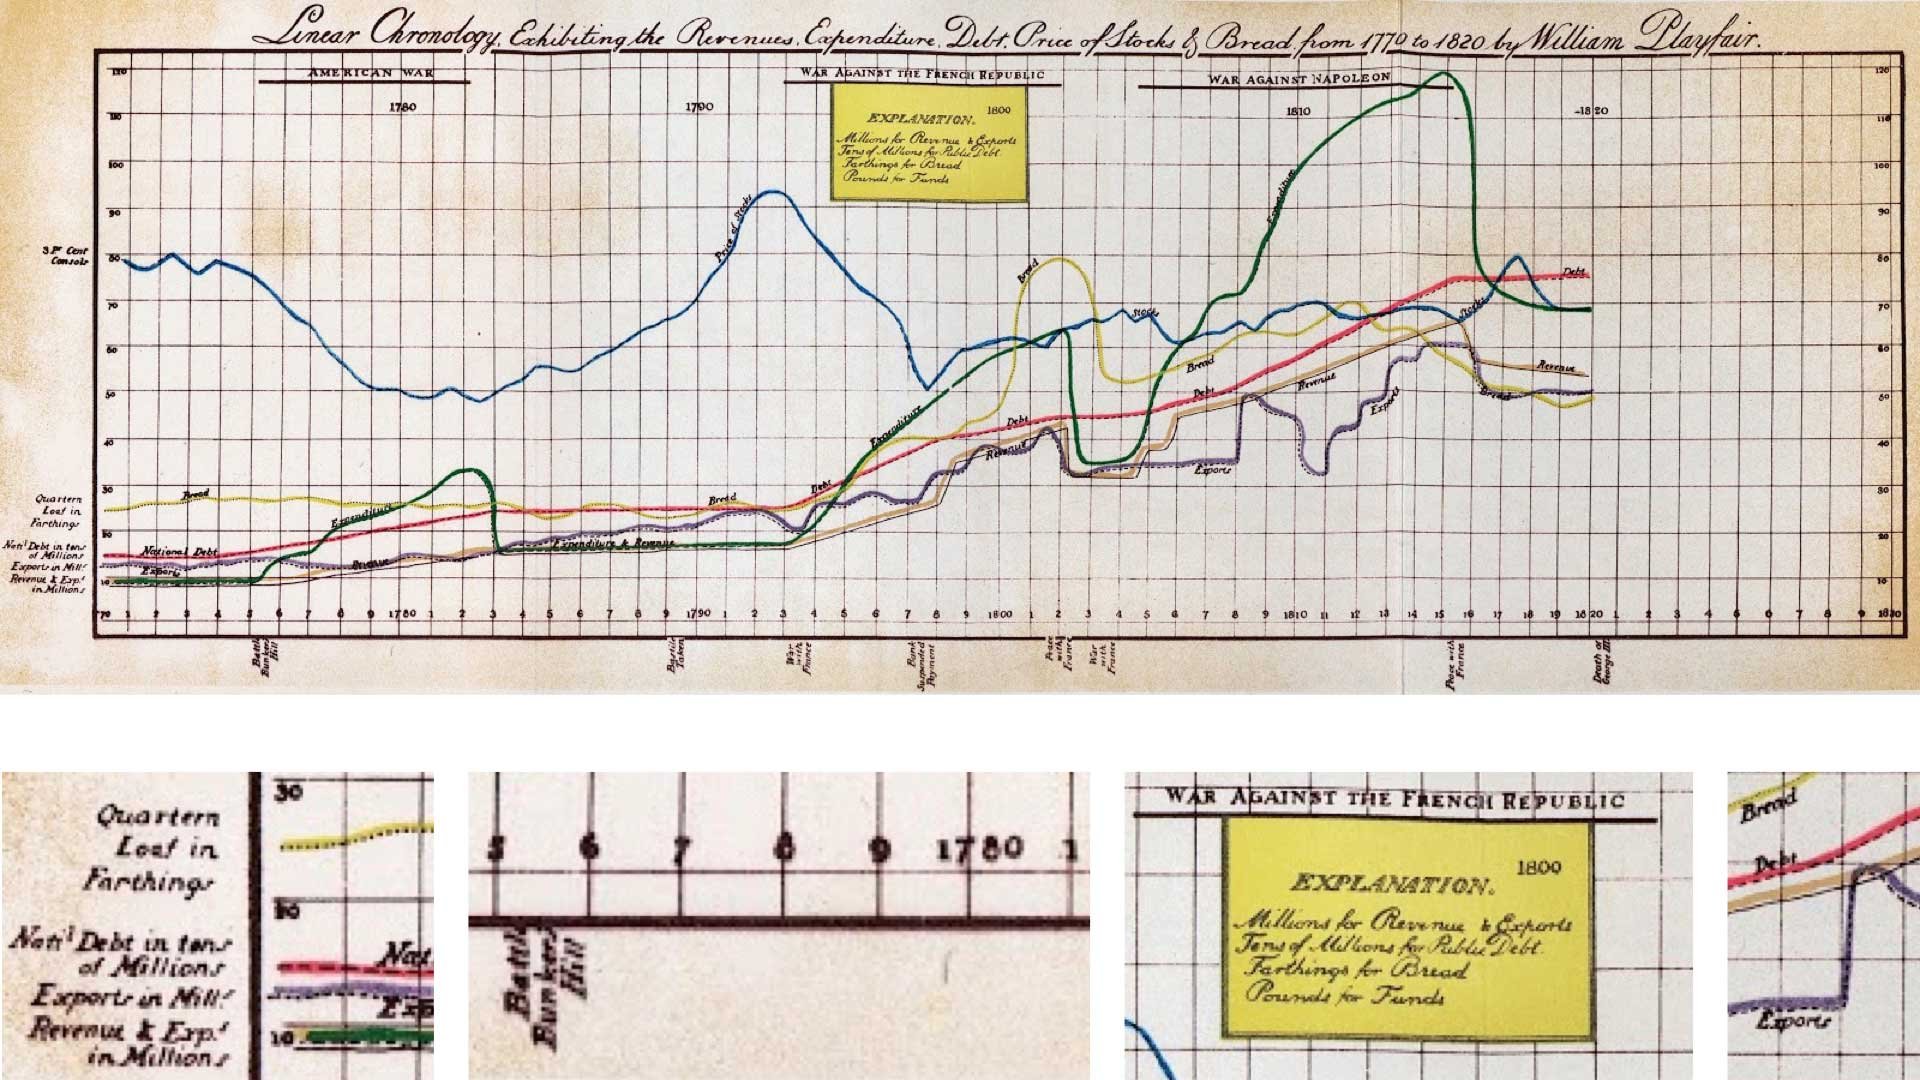 Linear Chronology, Exhibiting the Revenues, Expenditure, Debt, Price of Stocks & Bread, from 1770 to 1820 by William Playfair.
AMERICAN WAR
WAR AGAINST THE FRENCH REPUBLIC
WAR AGAINST NAPOLEON
1780
1790
1800
1810
1820
EXPLANATION.
Millions for Revenue & Exports
Tens of Millions for Public Debt.
Farthings for Bread
Pounds for Funds
120
110
100
90
80
70
60
50
40
30
20
10
120
110
100
90
80
70
60
50
40
30
20
10
3 Pr Cent
Consols
Quartern
Loaf in
Farthings
Natl Debt in tens
of Millions
Exports in Mills
Revenue & Expt
in Millions
Price of Stocks
Bread
Expenditure
National Debt
Exports
Revenue
Bread
Expenditure & Revenue
Debt
Expenditure
Revenue
Debt
Bread
Stocks
Bread
Debt
Exports
Expenditure
Revenue
Exports
Stocks
Bread
Debt
Revenue
1770 1 2 3 4 5 6 7 8 9 1780 1 2 3 4 5 6 7 8 9 1790 1 2 3 4 5 6 7 8 9 1800 1 2 3 4 5 6 7 8 9 1810 11 12 13 14 15 16 17 18 19 1820 1 2 3 4 5 6 7 8 9 1830
Battle
Bunkers
Hill
Bastile
Taken
War
with
France
Bank
Suspended
Payment
Peace
with
France
War
with
France
Peace with
France
Death of
George III
Quartern
Loaf in
Farthings
Natl Debt in tens
of Millions
Exports in Mills
Revenue & Expt
in Millions
30
20
10
Nat
Exp
5 6 7 8 9 1780 1
Battl
Bunkers
Hill
WAR AGAINST THE FRENCH REPUBLIC
1800
EXPLANATION.
Millions for Revenue & Exports
Tens of Millions for Public Debt.
Farthings for Bread
Pounds for Funds
Bread
Debt
Exports